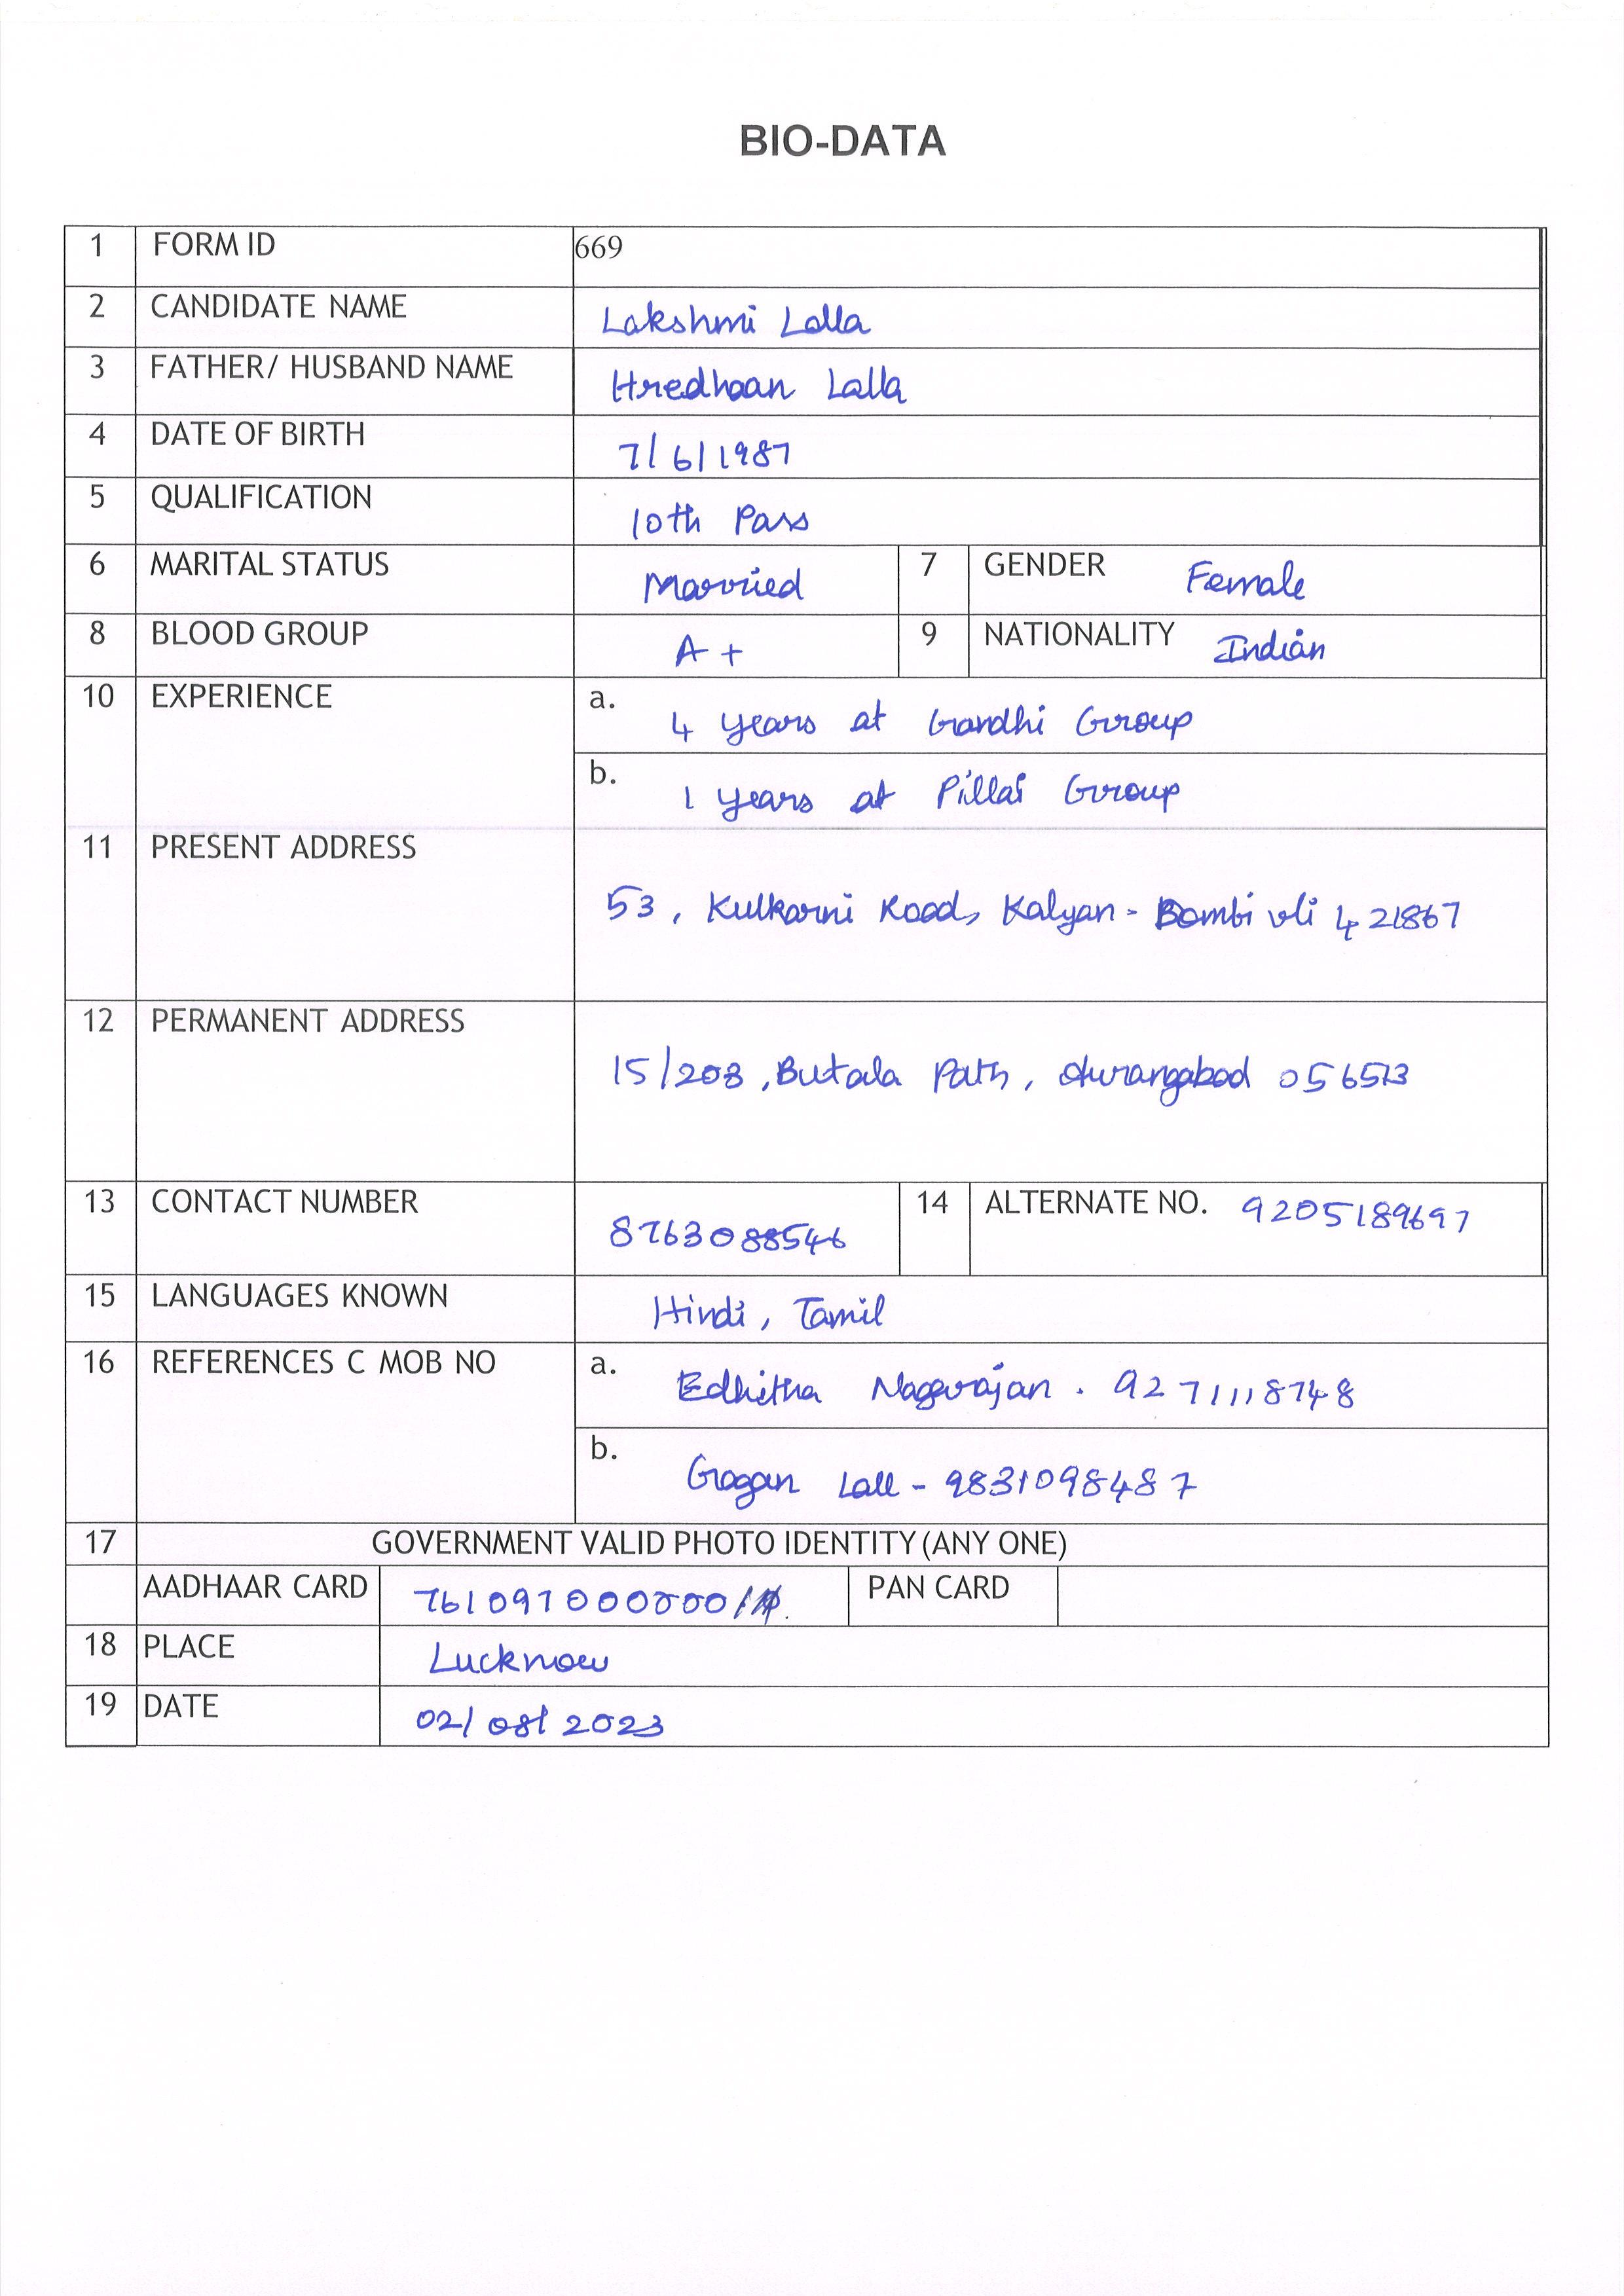 BIO-DATA
1 FORM ID 669
2 CANDIDATE NAME Lakshmi Lalla
3 FATHER/ HUSBAND NAME Hredhaan Lalla
4 DATE OF BIRTH 7/6/1987
5 QUALIFICATION 10th Pass
6 MARITAL STATUS Married 7 GENDER Female
8 BLOOD GROUP A+ 9 NATIONALITY Indian
10 EXPERIENCE a. 4 years at Gandhi Group
b. 1 years at Pillai Group
11 PRESENT ADDRESS
53, Kulkarni Road, Kalyan - Dombivli 421867
12 PERMANENT ADDRESS
15/203, Butala Path, Aurangabad 056513
13 CONTACT NUMBER 8763088546 14 ALTERNATE NO. 9205189697
15 LANGUAGES KNOWN Hindi, Tamil
16 REFERENCES C MOB NO a. Edhitha Nagarajan - 9271118748
b. Gagan Lall - 9831098487
17 GOVERNMENT VALID PHOTO IDENTITY (ANY ONE)
AADHAAR CARD 761097000000 PAN CARD
18 PLACE Lucknow
19 DATE 02/08/2023